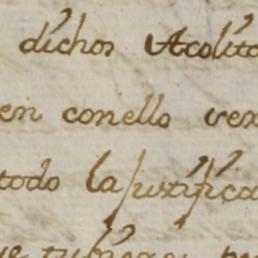 dichos Acolito
en conello vex
todo la justifica